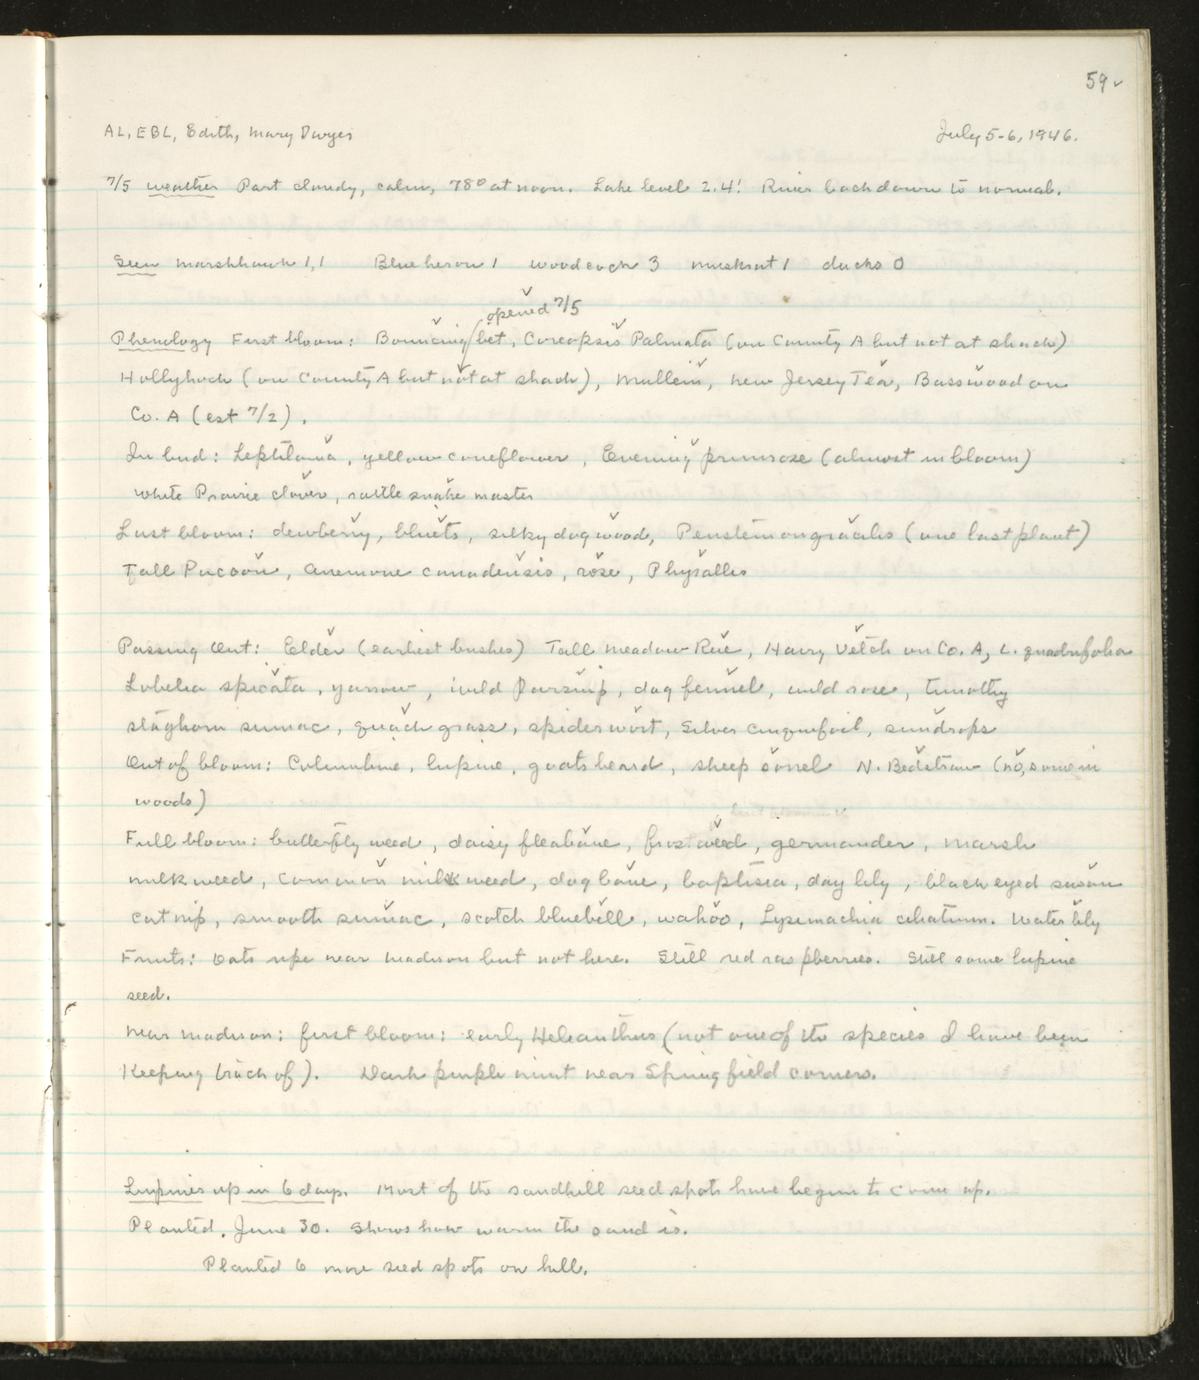 59
AL, EBL, Edith, Mary Dwyer July 5-6, 1946.
7/5 weather Part cloudy, calm, 78° at noon. Lake level 2.4! River back down to normal.
Seen marshhawk 1,1 Blue heron 1 woodcock 3 muskrat 1 ducks 0
opened 7/5
Phenology First bloom: Bouncing bet, Coreopsis Palmata (on County A but not at shack)
Hollyhock (on County A but not at shack), Mullein, New Jersey Tea, Basswood on
Co. A (est 7/2).
In bud: Leptilonia, yellow coneflower, Evening primrose (almost in bloom)
White Prairie clover, rattle snake master
Last bloom: dewberry, bluets, silky dogwood, Penstemon gracilis (one last plant)
Tall Pucoon, Anemone canadensis, rose, Physallis
Passing Out: Elder (earliest bushes) Tall meadow Rue, Hairy Vetch on Co. A, L. quadrifolia
Lobelia spicata, yarrow, wild Parsnip, dog fennel, wild rose, timothy
staghorn sumac, quack grass, spiderwort, Silver cinquefoil, sundrops
Out of bloom: Columbine, lupine, goatsbeard, sheep sorrel N. Bedstraw (no, some in
woods)
Full bloom: butterfly weed, daisy fleabane, frostweed, germander, marsh
milkweed, common milkweed, dogbane, baptisia, day lily, blackeyed susan
catnip, smooth sumac, scotch bluebell, wahoo, Lysimachia ciliatum. Water lily
Fruits: Oats ripe near Madison but not here. Still red raspberries. Still some lupine
seed.
Near Madison: first bloom: early Helianthus (not one of the species I have been
Keeping track of). Dark purple mint near Springfield corners.
Lupines up in 6 days. Most of the sandhill seed spots have begun to come up.
Planted June 30. Shows how warm the sand is.
Planted 6 more seed spots on hill.